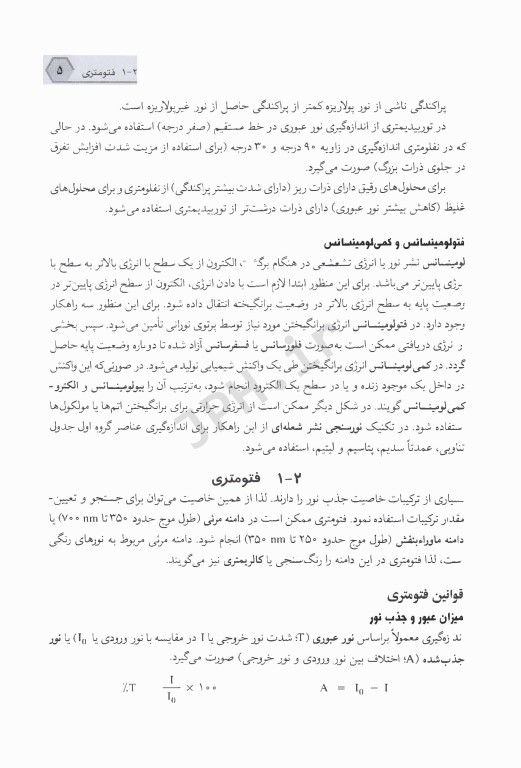 ۱-۲ فتومتری ۵
پراکندگی ناشی از نور پولاریزه کمتر از پراکندگی حاصل از نور غیرپولاریزه است.
در توربیدیمتری از اندازه‌گیری نور عبوری در خط مستقیم (صفر درجه) استفاده می‌شود. در حالی
که در نفلومتری اندازه‌گیری در زاویه ۹۰ درجه و ۳۰ درجه (برای استفاده از مزیت شدت افزایش تفرق
در جلوی ذرات بزرگ) صورت می‌گیرد.
برای محلول‌های رقیق دارای ذرات ریز (دارای شدت بیشتر پراکندگی) از نفلومتری و برای محلول‌های
غلیظ (کاهش بیشتر نور عبوری) دارای ذرات درشت‌تر از توربیدیمتری استفاده می‌شود.
فتولومینسانس و کمی‌لومینسانس
لومینسانس نشر نور یا انرژی تشعشعی در هنگام برگشت، الکترون از یک سطح با انرژی بالاتر به سطح با
رژی پایین‌تر می‌باشد. برای این منظور ابتدا لازم است با دادن انرژی، الکترون از سطح انرژی پایین‌تر در
وضعیت پایه به سطح انرژی بالاتر در وضعیت برانگیخته انتقال داده شود. برای این منظور سه راهکار
وجود دارد. در فتولومینسانس انرژی برانگیختن مورد نیاز توسط پرتوی نورانی تأمین می‌شود. سپس بخشی
ر نرژی دریافتی ممکن است به‌صورت فلورسانس یا فسفرسانس آزاد شده تا دوباره وضعیت پایه حاصل
گردد. در کمی لومینسانس انرژی برانگیختن طی یک واکنش شیمیایی تولید می‌شود. در صورتی‌که این واکنش
در داخل یک موجود زنده و یا در سطح یک الکترود انجام شود، به‌ترتیب آن را بیولومینسانس و الکترو-
کمی‌لومینسانس گویند. در شکل دیگر ممکن است از انرژی حرارتی برای برانگیختن اتم‌ها یا مولکول‌ها
ستفاده شود. در تکنیک نورسنجی نشر شعله‌ای از این راهکار برای اندازه‌گیری عناصر گروه اول جدول
تناوبی، عمدتاً سدیم، پتاسیم و لیتیم، استفاده می‌شود.
۱-۲ فتومتری
بسیاری از ترکیبات خاصیت جذب نور را دارند. لذا از همین خاصیت می‌توان برای جستجو و تعیین-
مقدار ترکیبات استفاده نمود. فتومتری ممکن است در دامنه مرئی (طول موج حدود ۳۵۰ تا ۷۰۰ nm) یا
دامنه ماوراءبنفش (طول موج حدود ۲۵۰ تا ۳۵۰ nm) انجام شود. دامنه مرئی مربوط به نورهای رنگی
ست، لذا فتومتری در این دامنه را رنگ‌سنجی یا کالریمتری نیز می‌گویند.
قوانین فتومتری
میزان عبور و جذب نور
ند زه‌گیری معمولاً براساس نور عبوری (T؛ شدت نور خروجی یا I در مقایسه با نور ورودی یا I₀) یا نور
جذب‌شده (A؛ اختلاف بین نور ورودی و نور خروجی) صورت می‌گیرد.
٪T I/I₀ × ۱۰۰ A = I₀ − I